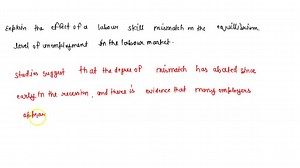 Explain the effect of a labour skill mismatch on the equilibrium
level of unemployment in the labour market.
Studies suggest that the degree of mismatch has abated since
early in the recession, and there is evidence that many employers
appear